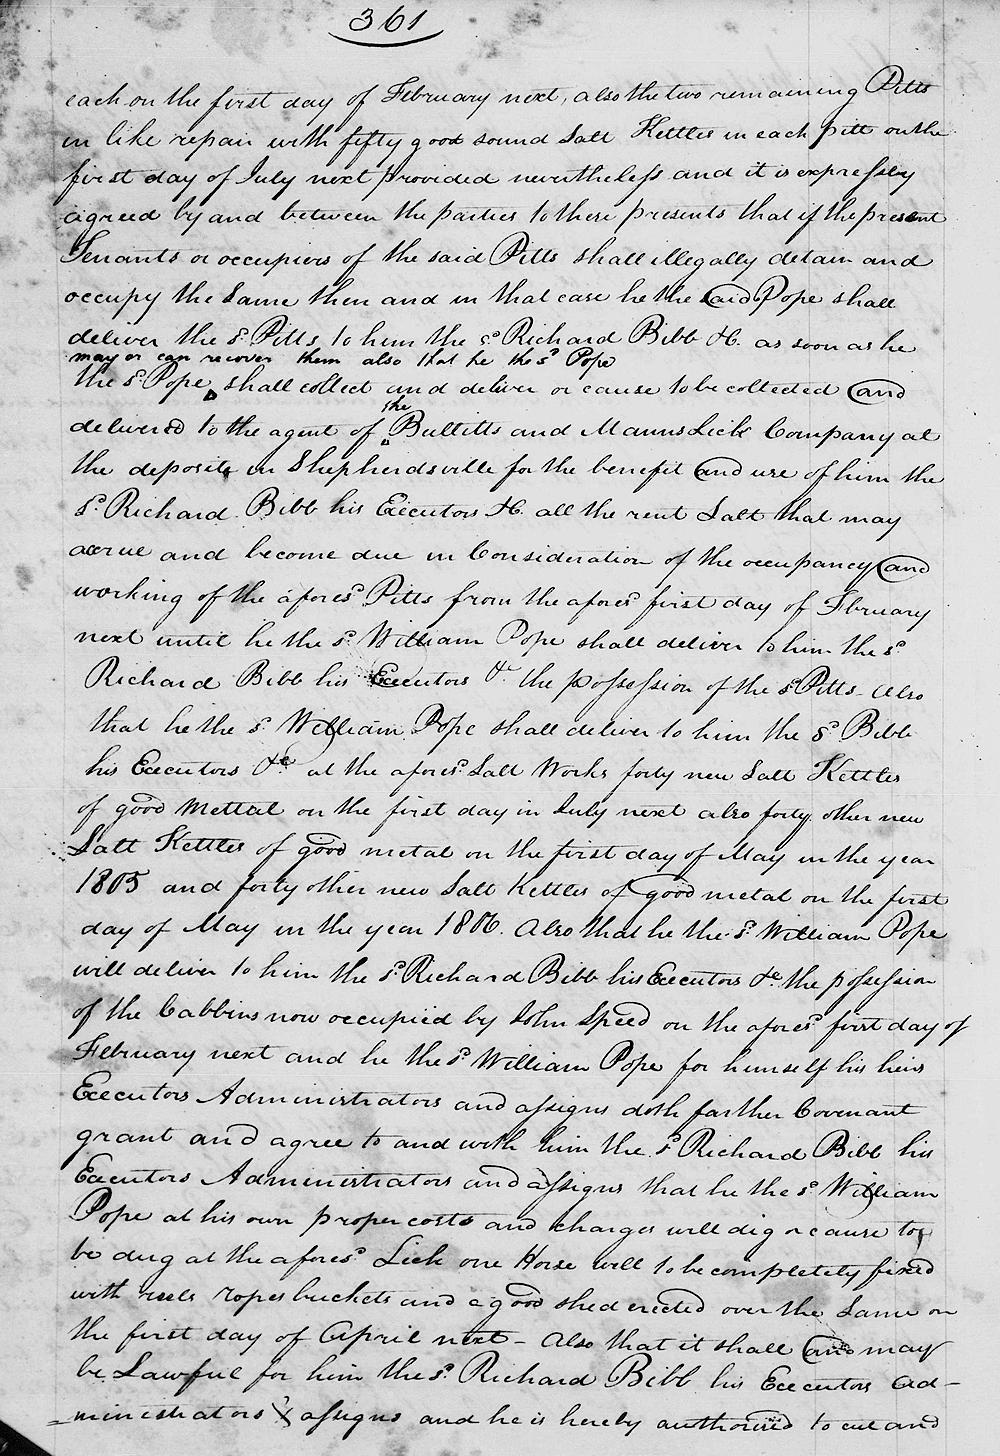 361
each on the first day of February next, also the two remaining Pitts
in like repair with fifty good sound Salt Kettles in each pitt on the
first day of July next provided nevertheless and it is expressly
agreed by and between the parties to these presents that if the present
Tenants or occupiers of the said Pitts shall illegally detain and
occupy the Same then and in that case he the said Pope shall
deliver the sd. Pitts, to him the sd. Richard Bibb &c. as soon as he
may or can recover them also that he the sd. Pope
the sd. Pope shall collect and deliver or cause to be collected and
the
delivered to the agent of Bullitts and Manns Lick Company at
the deposite in Shepherdsville for the benefit and use of him the
sd. Richard Bibb his Executors &c. all the rent Salt that may
accrue and become due in Consideration of the occupancy and
working of the afores.d Pitts from the afores.d first day of Fbruary
next until he the sd. William Pope shall deliver to him the sd.
Richard Bibb his Executors &c the possession of the sd. Pitts - also
that he the sd. William Pope shall deliver to him the sd. Bibb
his Executors &c at the afores.d Salt Works forty new Salt Kettles
of good Mettal on the first day in July next also forty other new
Salt Kettles of good metal on the first day of May in the year
1805 and forty other new Salt Kettles of good metal on the first
day of May in the year 1806. Also that he the sd. William Pope
will deliver to him the sd. Richard Bibb his Executors &c. the possession
of the Cabbins now occupied by John Speed on the afores.d first day of
February next and he the sd. William Pope for himself his heirs
Executors Administrators and assigns doth farther Covenant
grant and agree to and with him the sd. Richard Bibb his
Executors Administrators and assigns that he the sd. William
Pope at his own proper costs and charges will dig or cause to
be dug at the afores.d Lick one Horse well to be completely fixed
with reels ropes buckets and a good shed erected over the Same on
the first day of April next - Also that it shall and may
be Lawful for him the sd. Richard Bibb his Executors Ad-
=ministrators & assigns and he is hereby authorised to cut and